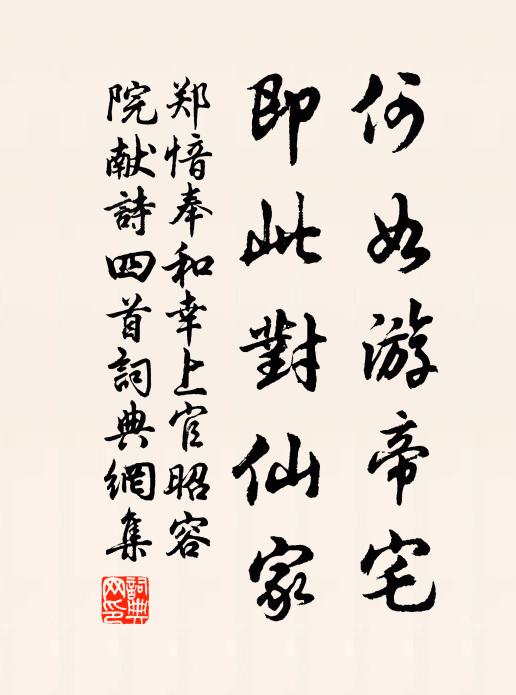 何如游帝宅
即此對仙家
郑愔奉和幸上官昭容
院献詩四首詞典網集
詞典网印